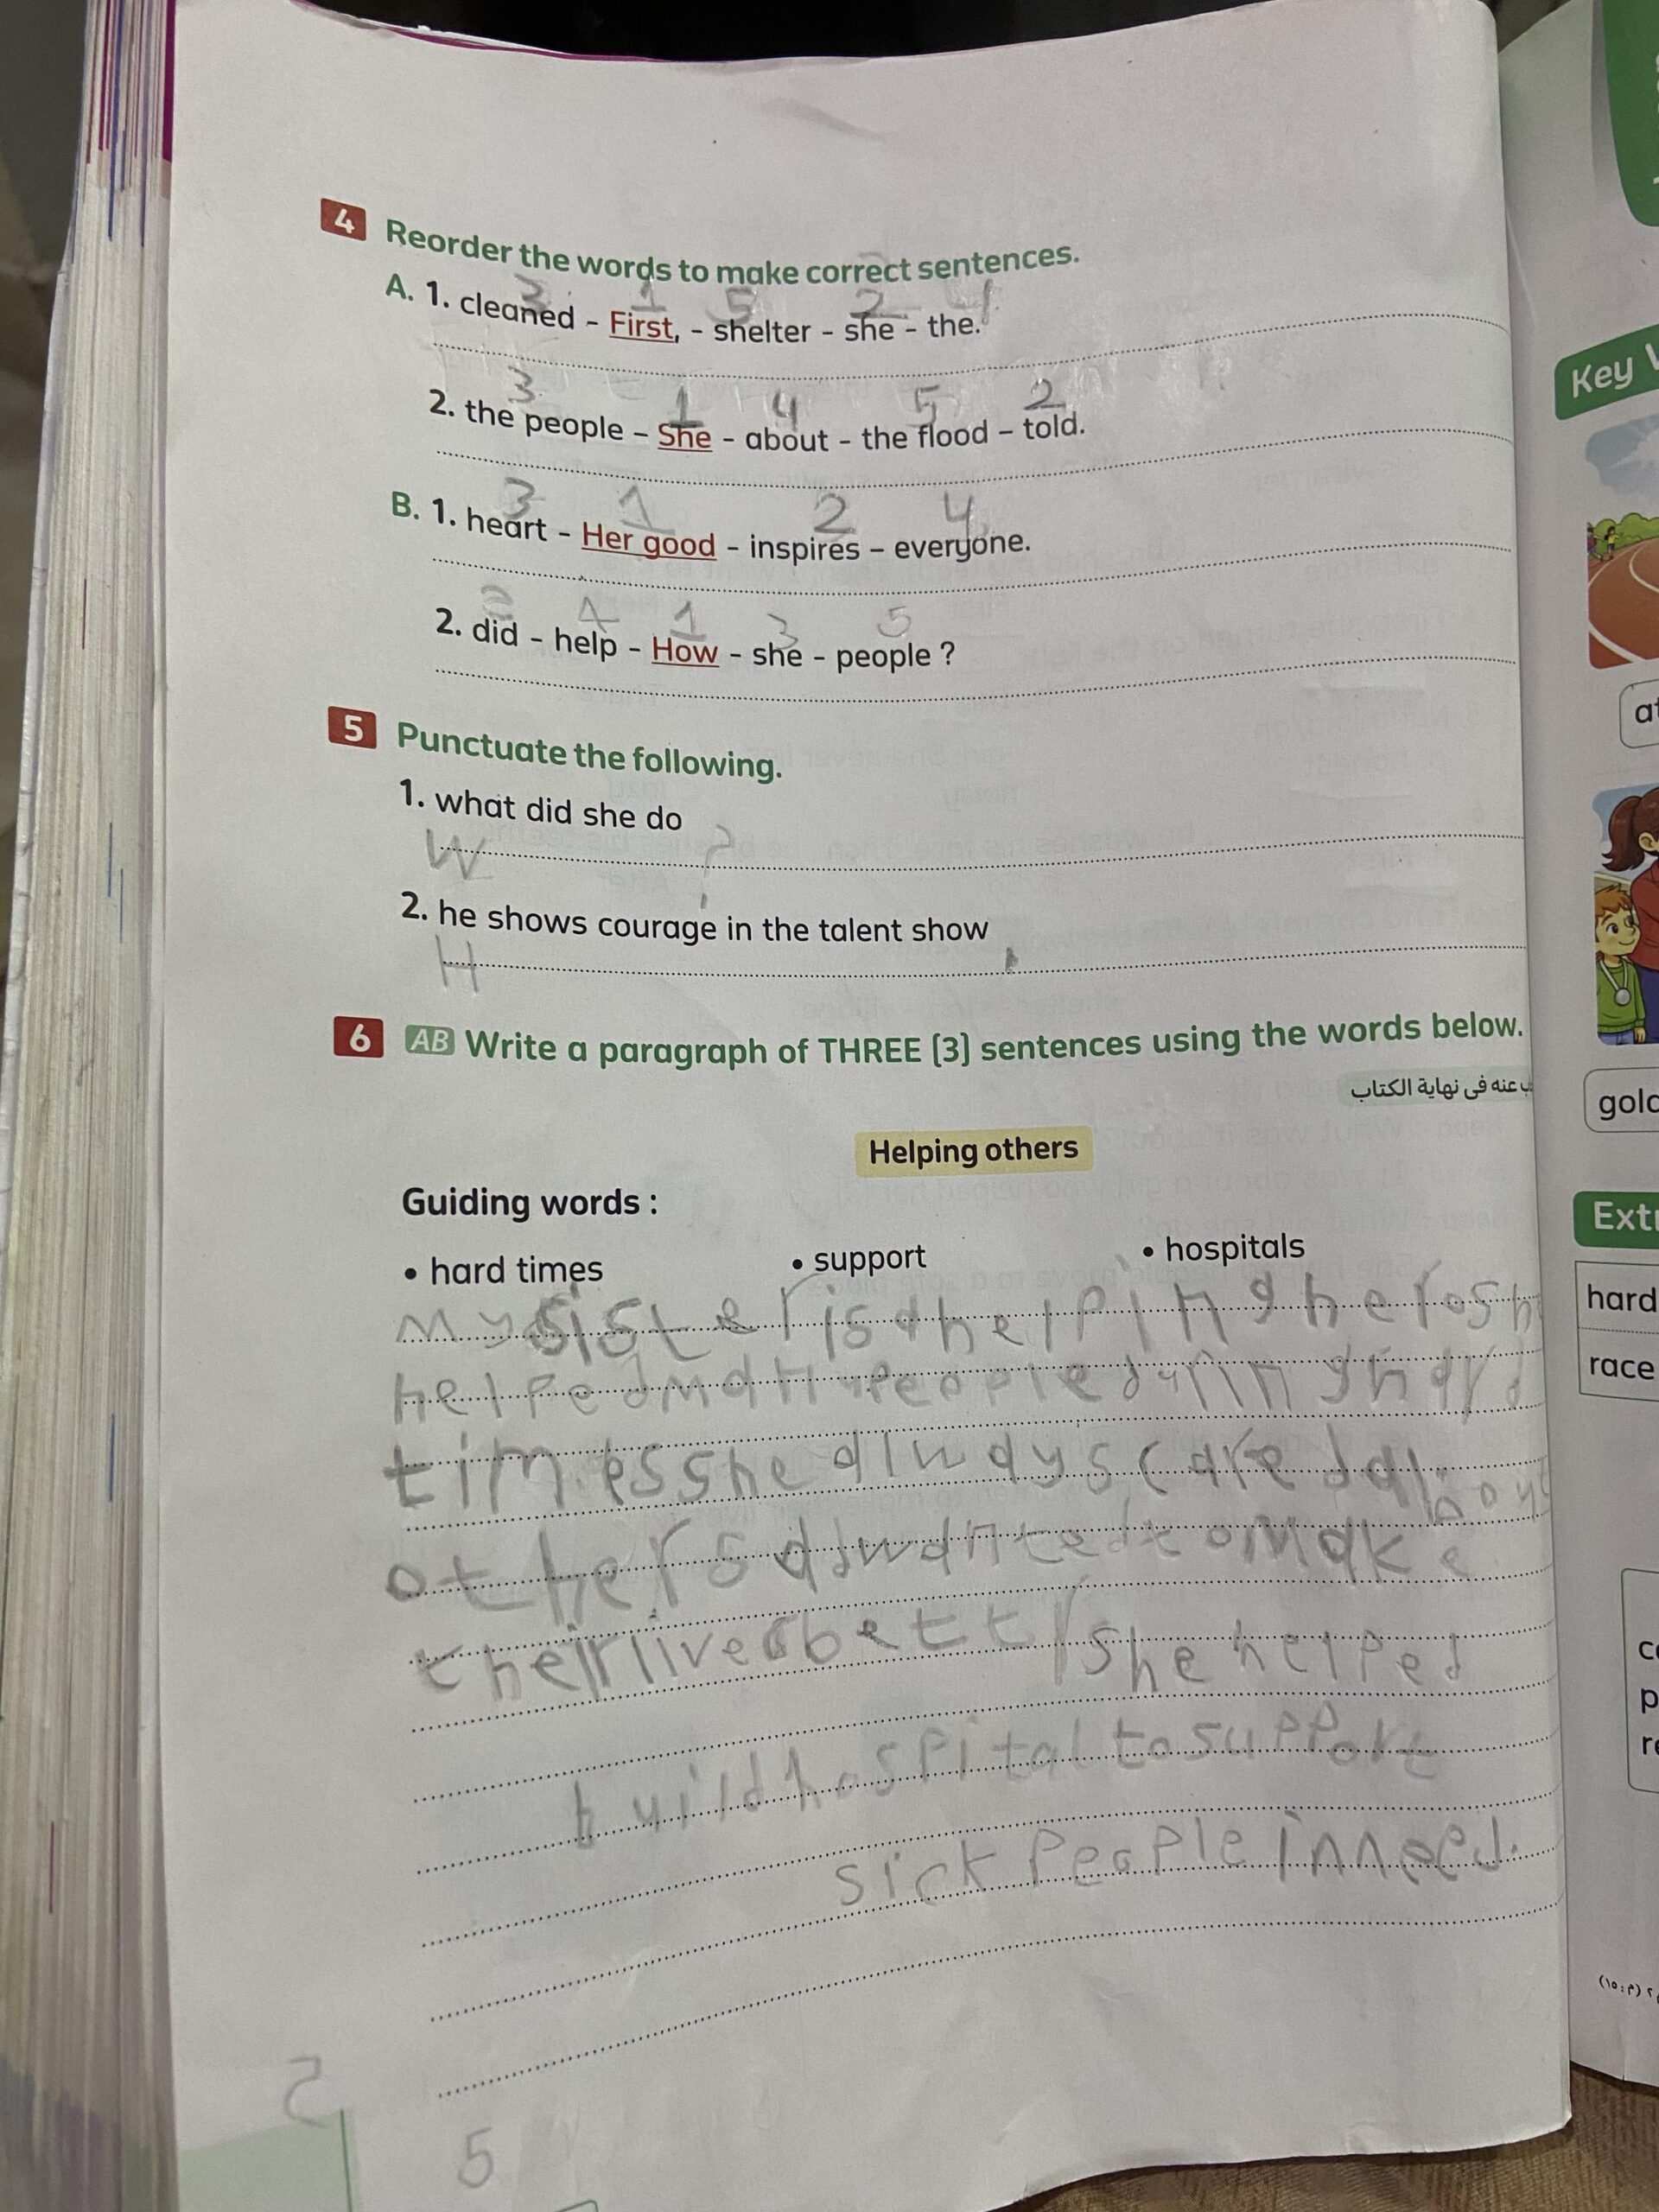 4 Reorder the words to make correct sentences.
3 1 5 2 4
A. 1. cleaned - First, - shelter - she - the.
3 1 4 5 2
2. the people - She - about - the flood - told.
3 1 2 4
B. 1. heart - Her good - inspires - everyone.
2 4 1 3 5
2. did - help - How - she - people ?
5 Punctuate the following.
1. what did she do
W ?
2. he shows courage in the talent show
H .
6 AB Write a paragraph of THREE (3) sentences using the words below.
عنه فى نهاية الكتاب
Helping others
Guiding words :
• hard times • support • hospitals
my sister is a helping hero sh
helped many people during hard
times she always cared
other s wanted to make
their lives she helped
build hospital to support
sick people in need.
5
5
Key
at
gold
Extr
hard
race